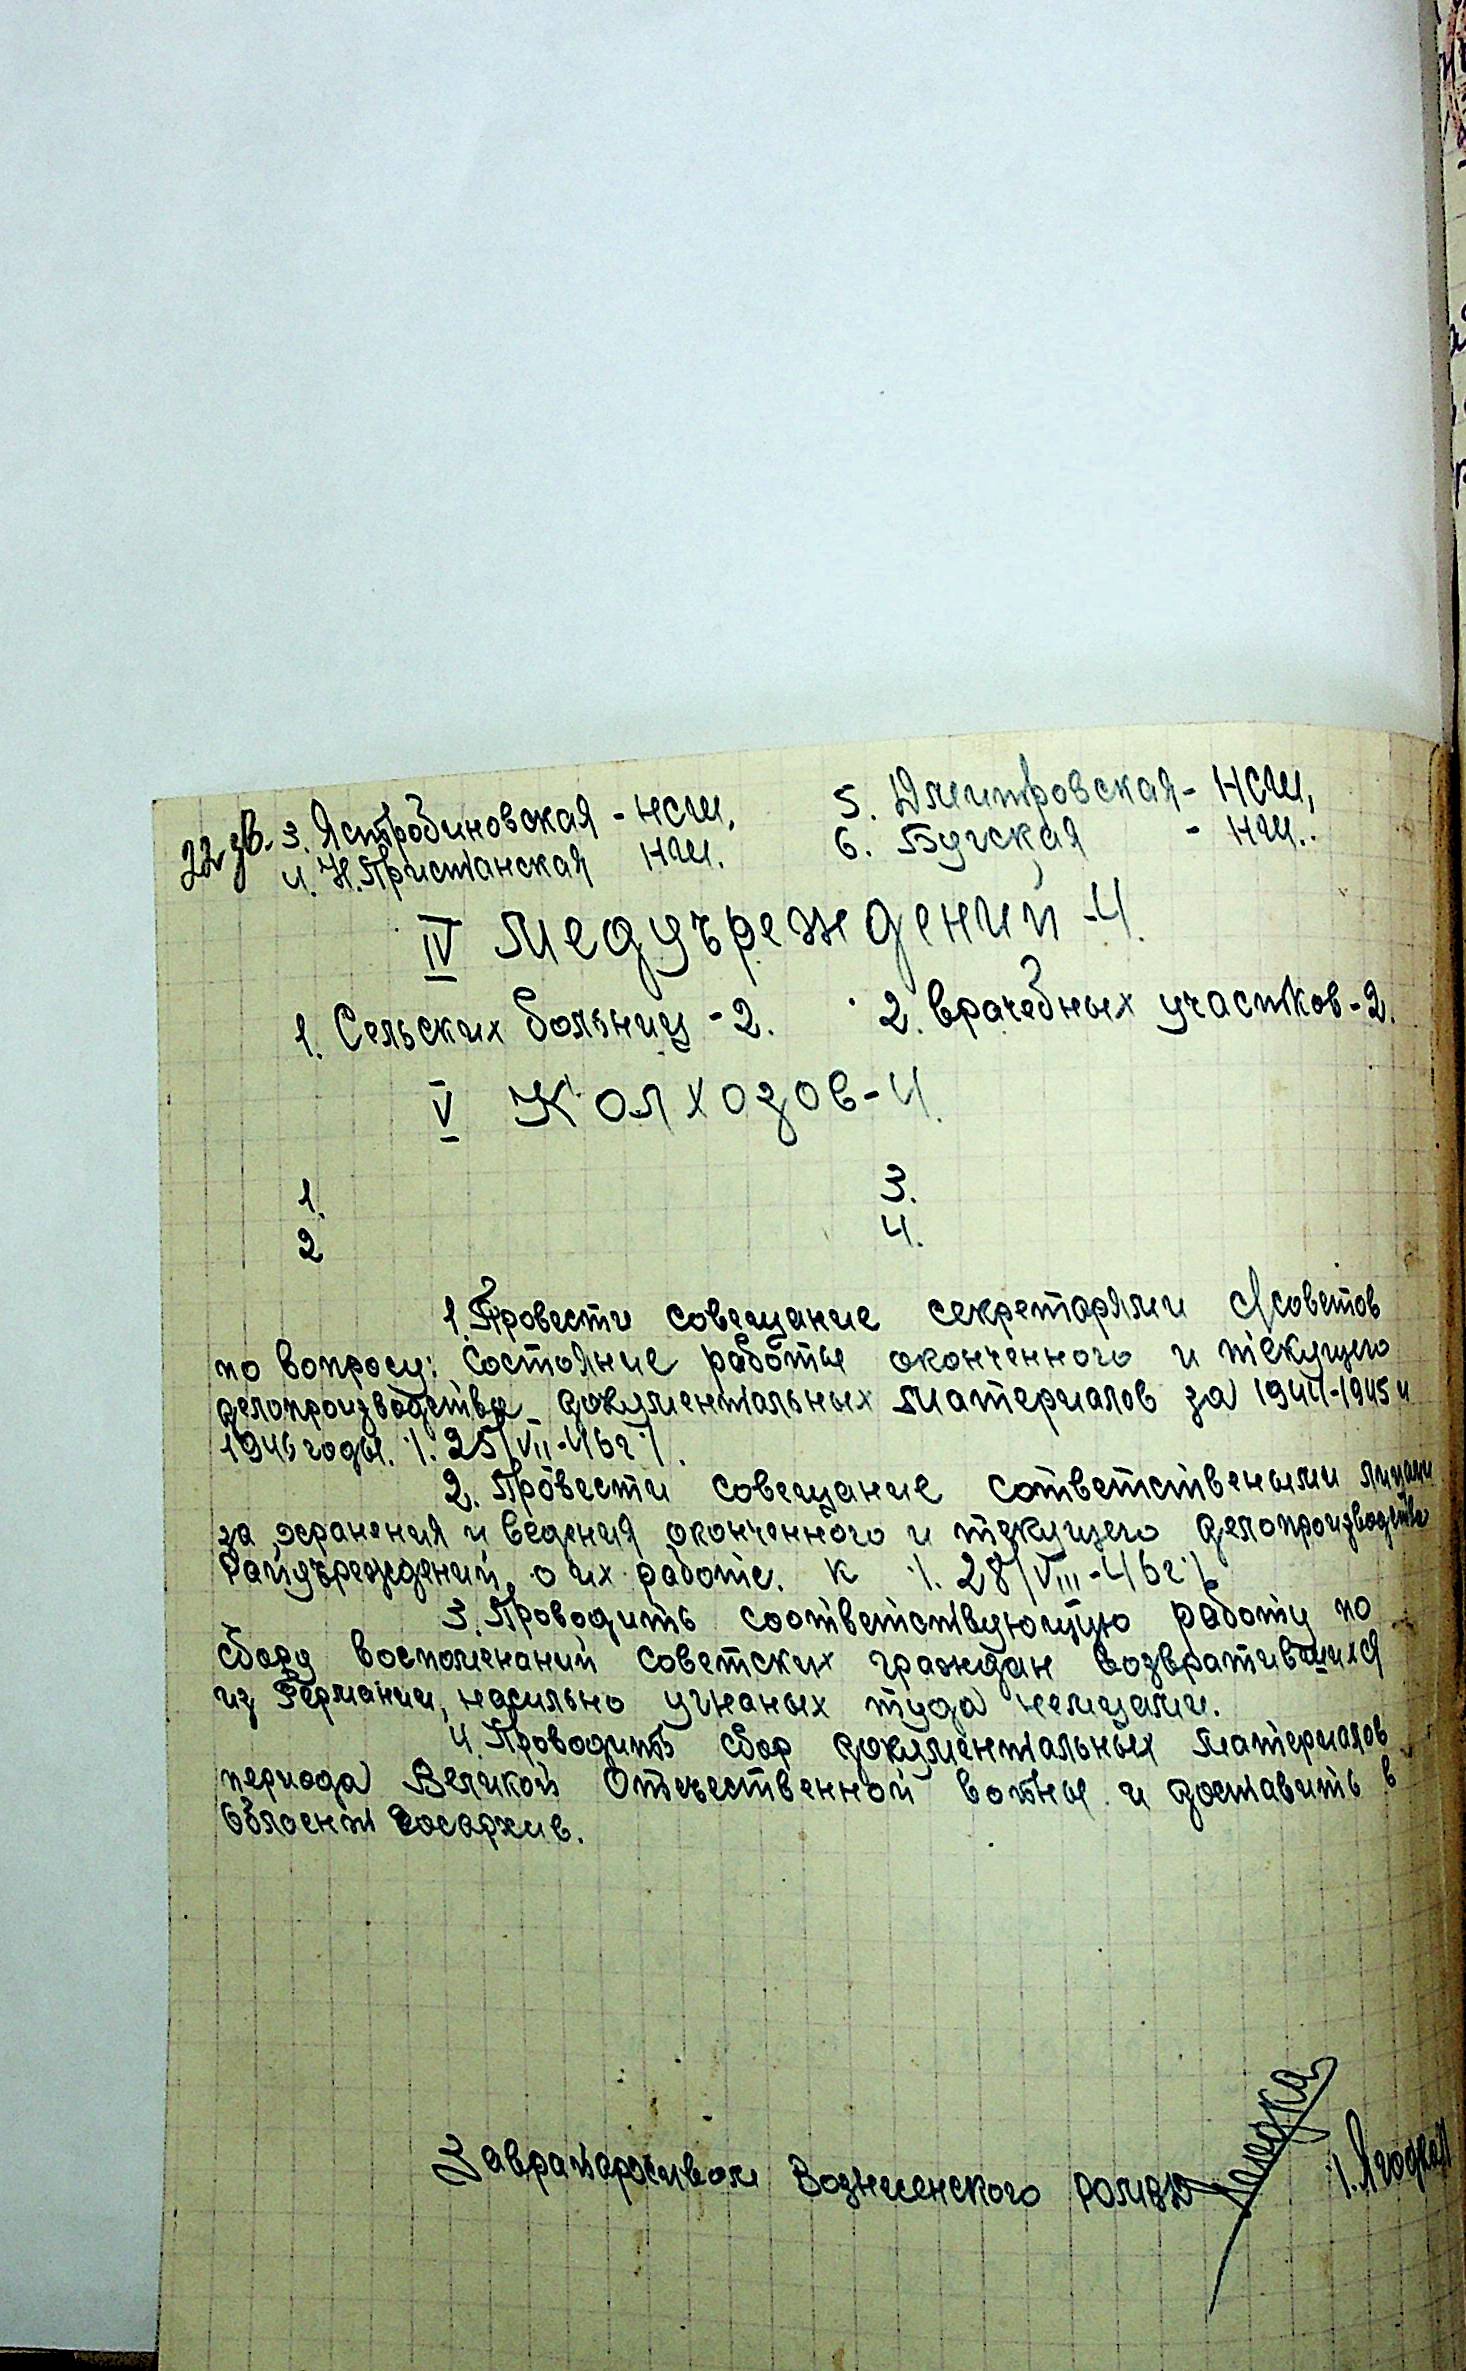 22 зв. 3. Ястробиновская - НСШ, 5. Дмитровская - НСШ,
4. Н.Пристанская НШ. 6. Бугская - НШ.
IV Медучреждений - 4.
1. Сельских больниц - 2. 2. врачебных участков - 2.
V Колхозов - 4.
1. 3.
2 4.
1. Провести совещание секретарями с/советов
по вопросу: состояние работы оконченного и текущего
делопроизводства документальных материалов за 1944-1945 и
1946 годы. /. 25/VII-46г /.
2. Провести совещание сответствеными лицами
за хранения и ведения оконченного и текущего делопроизводства
Райучреждений, о их работе. к /. 28/VIII-46г /.
3. Проводить соответствующую работу по
сбору воспоменаний советских граждан возвратившихся
из Германии, насильно угнаных туда немцами.
4. Проводить сбор документальных материалов
периода Великой Отечественной войны и доставить в
Облгосархив.
Заврайархивом Вознесенского РОМВД